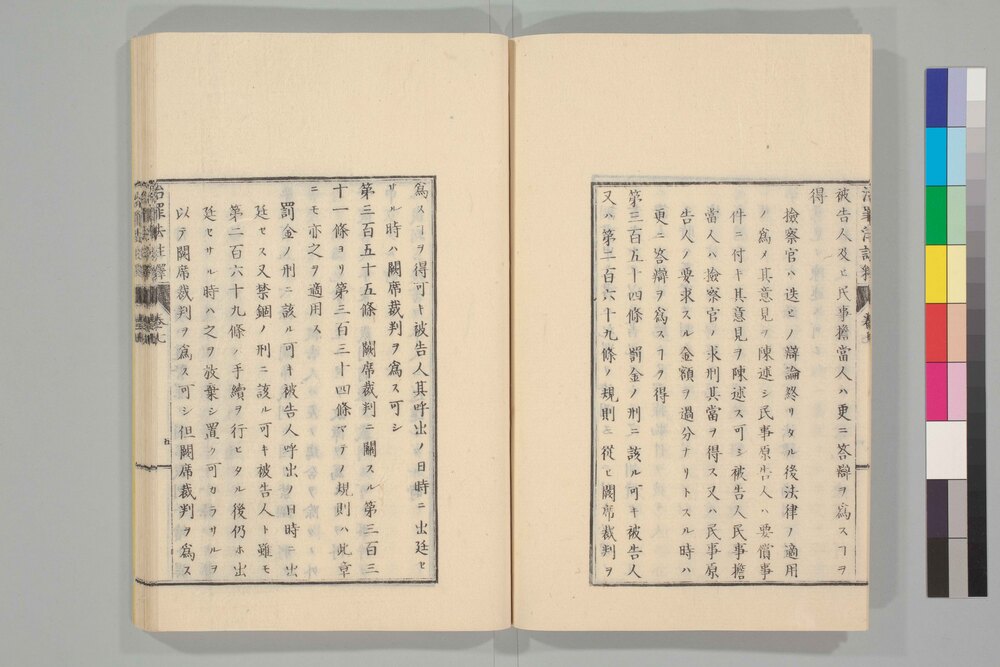 被告人及ヒ民事擔當人ハ更ニ答辯ヲ爲スヿヲ
得
檢察官ハ迭ヒノ辯論終リタル後法律ノ適用
ノ爲メ其意見ヲ陳述シ民事原告人ハ要償事
件ニ付キ其意見ヲ陳述ス可シ被告人民事擔
當人ハ檢察官ノ求刑其當ヲ得ス又ハ民事原
告人ノ要求スル金額ヲ過分ナリトスル時ハ
更ニ答辯ヲ爲スヿヲ得
第三百五十四條 罰金ノ刑ニ該ル可キ被告人
又ハ第二百六十九條ノ規則ニ從ヒ闕席裁判ヲ
爲スヿヲ得可キ被告人其呼出ノ日時ニ出廷セ
サル時ハ闕席裁判ヲ爲ス可シ
第三百五十五條 闕席裁判ニ關スル第三百三
十一條ヨリ第三百三十四條マテノ規則ハ此章
ニモ亦之ヲ適用ス
罰金ノ刑ニ該ル可キ被告人呼出ノ日時ニ出
廷セス又禁錮ノ刑ニ該ル可キ被告人ト雖モ
第二百六十九條ノ手續ヲ行ヒタル後仍ホ出
廷セサル時ハ之ヲ放棄シ置ク可カラサルヲ
以テ闕席裁判ヲ爲ス可シ但闕席裁判ヲ爲ス
治罪法註釋
五